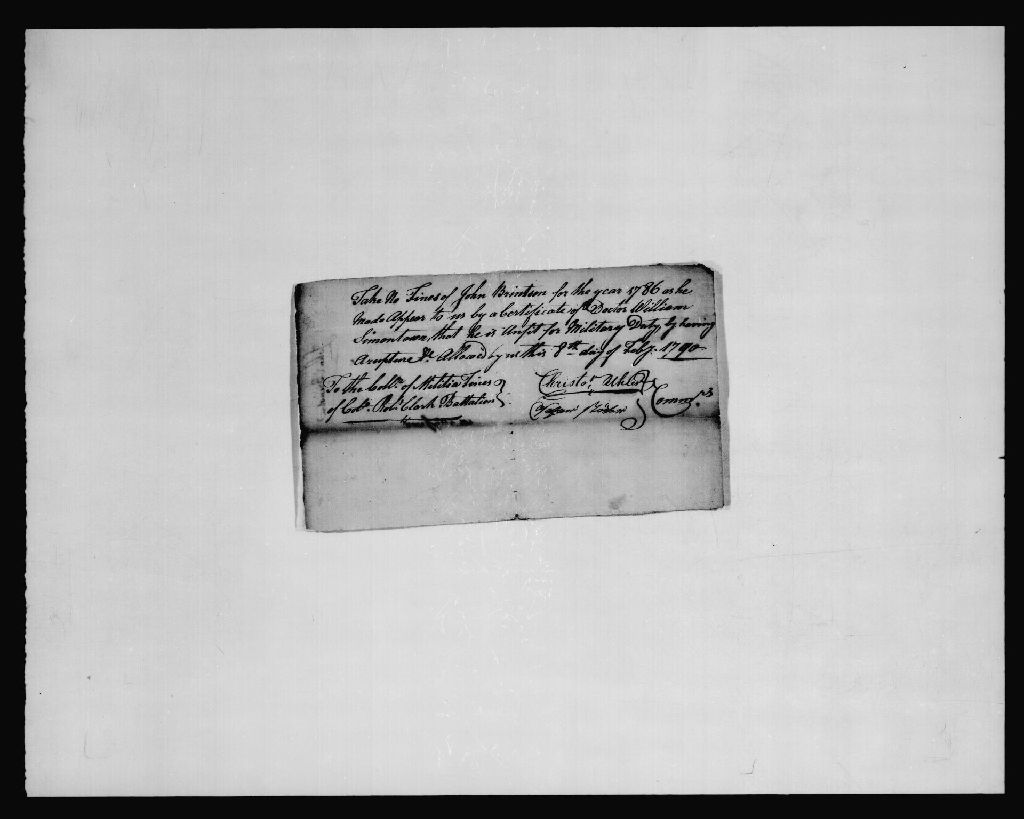 Take No Fines of John Brintson for the year 1786 as he
Made Appear to us by a Certificate of Doctor William
Simontown, that he is Unfit for Military Duty, by having
A rupture &c. Allowed by us this 8th day of Feby. 1790
To the Collr. of Melitia Fines
of Colo. Robt. Clark Battalion
Christor. Uhler
Commrs